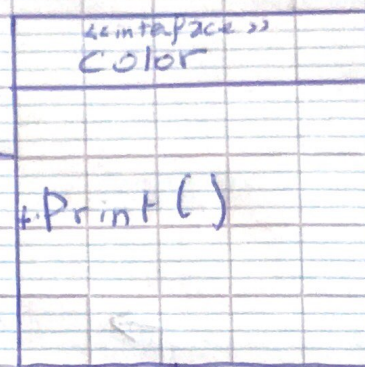 <<interface>>
Color
+.Print()